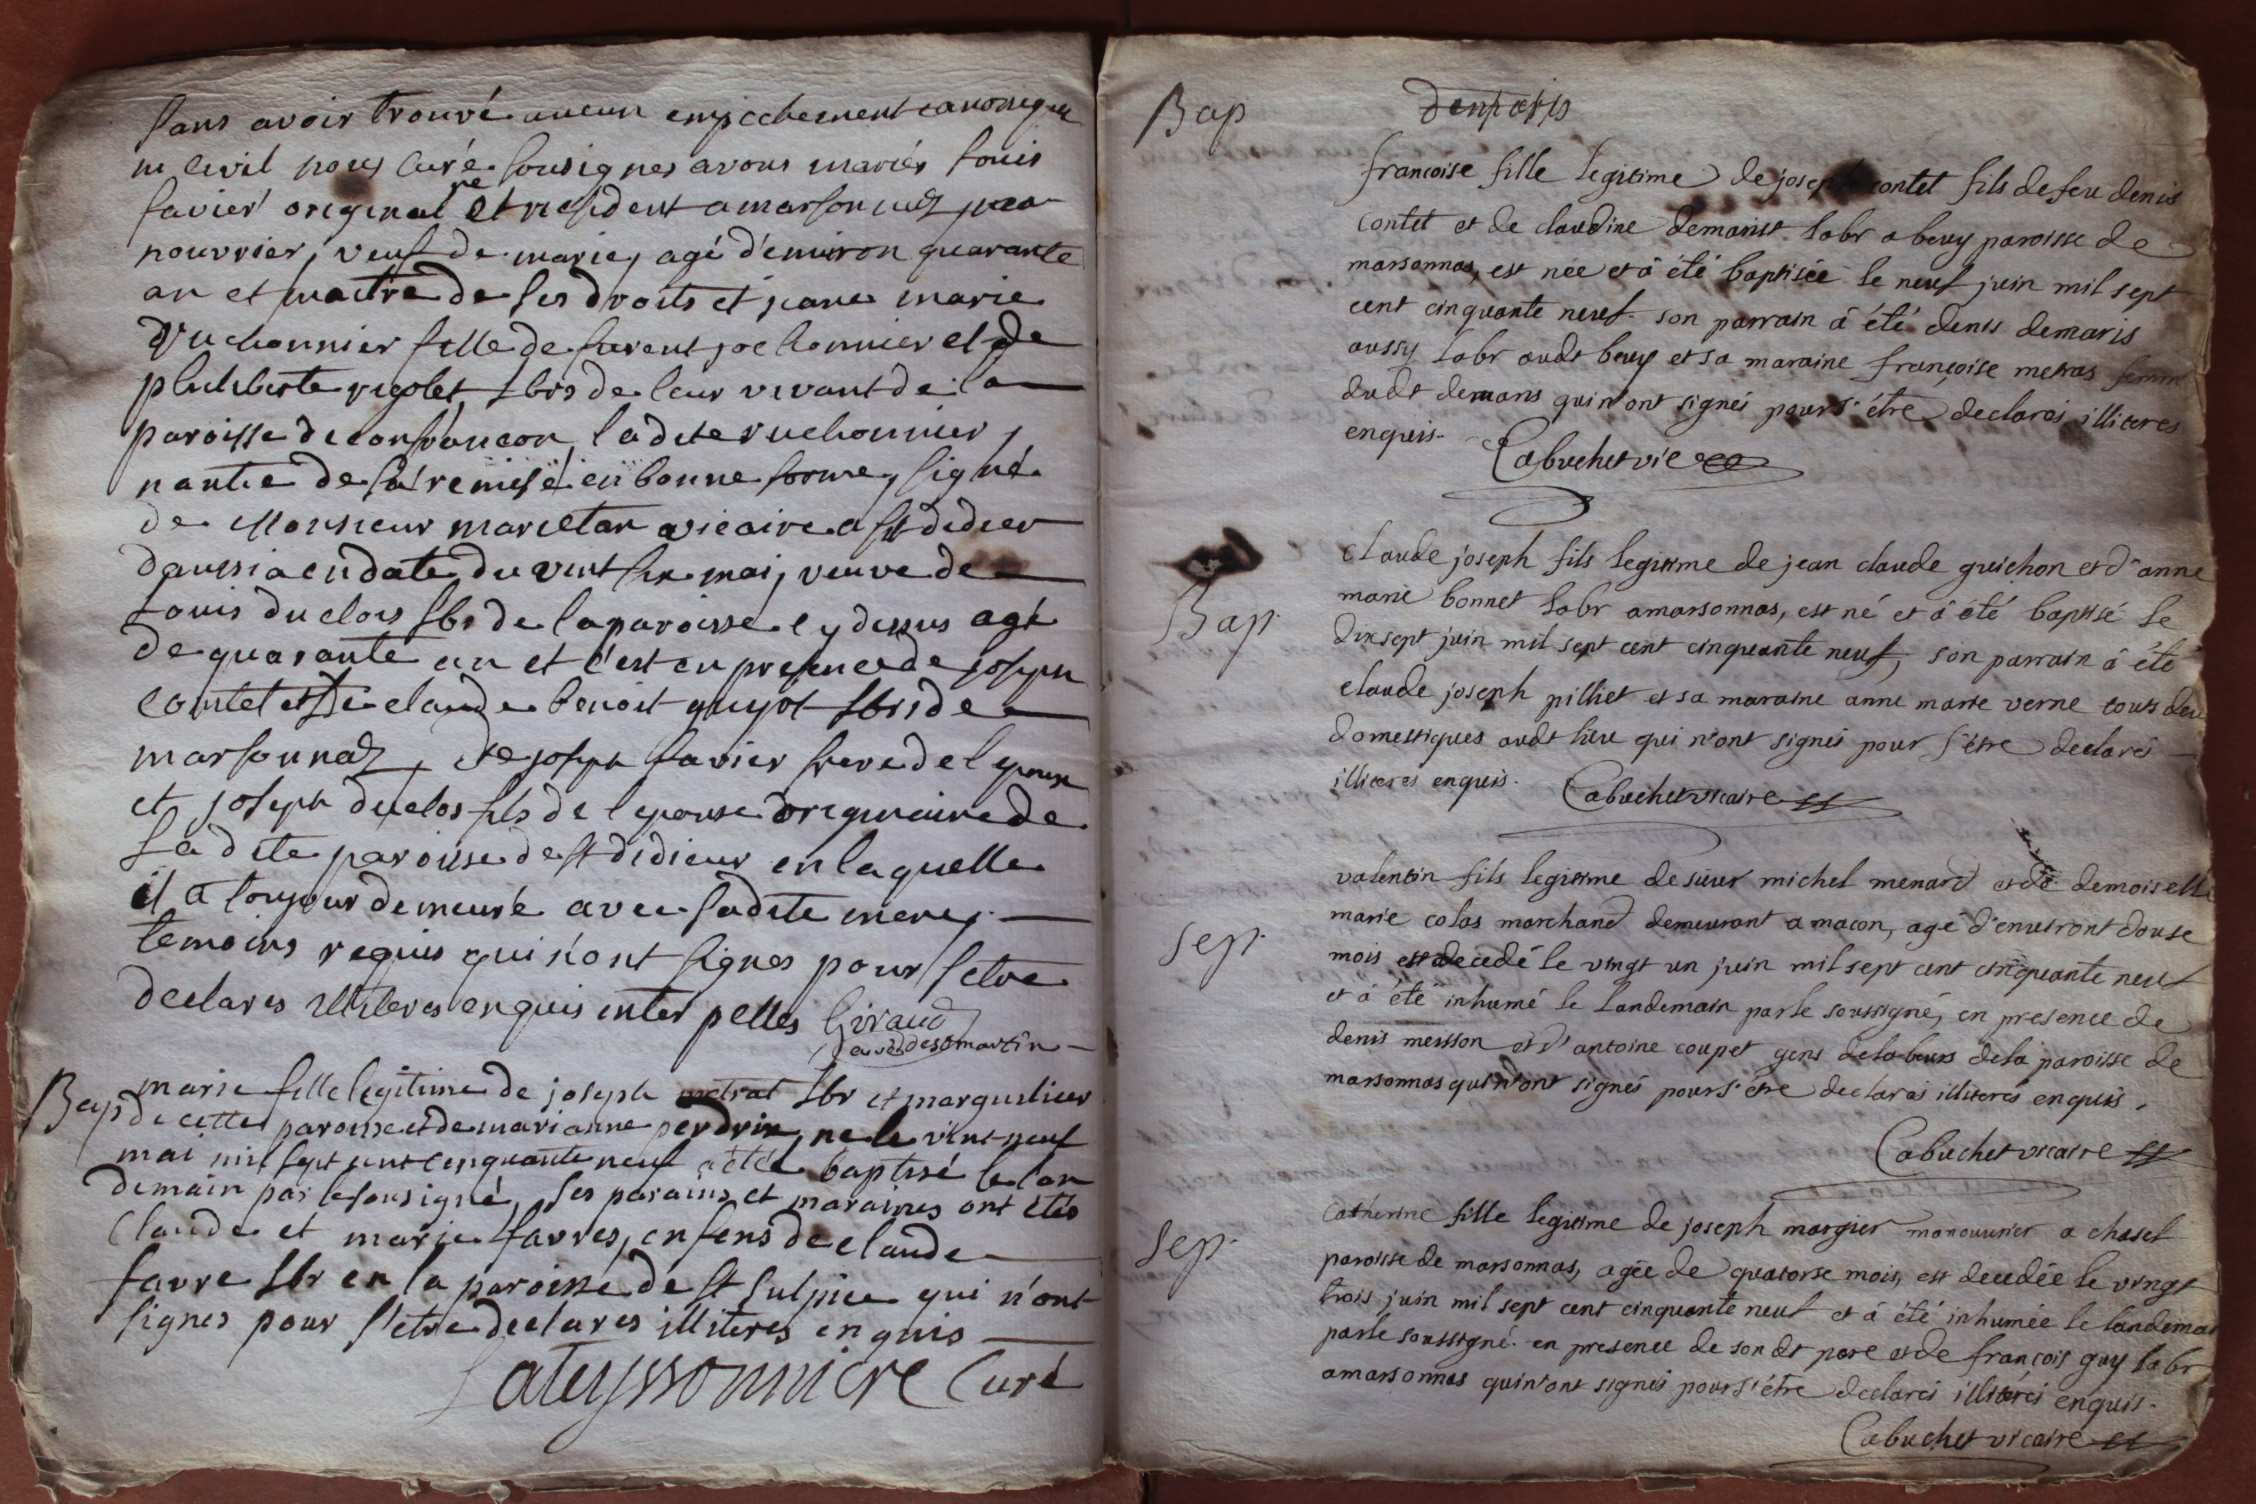 sans avoir trouvé aucun empechement canonique
ni civil nous curé sousignes avons mariés louis
favier original re et resident a marsonnaz
veuf de marie, agé d'environ quarante
an et maitre de ses droits et jeane marie
fille de et de
philiberte rigolet lbrs de leur vivant de la
paroisse de confrançon, ladite ruchonnier,
nantie de sa remise en bonne forme, signé
de Monsieur vicaire a st didier
daussia en date du vint six mai, veuve de
Louis duclos lbr de la paroisse cy dessus agé
de quarante an et c'est en presence de joseph
contet et de claude benoit guyot lbrs de
marsonnaz, de joseph favier frere de l'epoux
et joseph duclos fils de l'epouse originaire de
sadite paroisse de st didieur en laquelle
il a toujour demeuré avec sadite mere,
temoins requis qui n'ont signes pour s'etre
declares illiteres enquis inter pelles Giraud
curé de st martin
Bap marie fille legitime de joseph metrat lbr et marguilier
de cette paroisse et de marianne perdrix, ne le vint neuf
mai mil sept cent cinquante neuf a été baptisé le lan
demain par le sousigné, ses parains et maraines ont étés
Claude et marie favres, enfens de claude
favre lbr en la paroisse de st sulpice qui n'ont
signes pour s'etre declares illiteres enquis
Lateyssonniere Curé
Bap
francoise fille legitime de joseph contet fils de feu denis
contet et de claudine demarist labr a beuy paroisse de
marsonnas, est née et à été baptisée le neuf juin mil sept
cent cinquante neuf. son parrain à été denis demaris
aussy labr audt beuy et sa maraine françoise metras femm
dudt demaris qui n'ont signés pour s'être declarés illiteres
enquis. Cabuchet vic
Bap.
claude joseph fils legitime de jean claude guichon et d'anne
marie bonnet labr a marsonnas, est né et à été baptisé le
dix sept juin mil sept cent cinquante neuf, son parrain à été
claude joseph pilliet et sa maraine anne marie verne touts deu
domestiques audt lieu qui n'ont signés pour s'être declarés
illiteres enquis. Cabuchet vicaire
Sep.
valentin fils legitime de sieur michel menard et de demoiselle
marie colas marchand demeurant a macon, agé d'environt douse
mois est decedé le vingt un juin mil sept cent cinquante neuf
et à été inhumé le landemain par le soussigné, en presence de
denis meisson et d'antoine coupet gens de labeurs de la paroisse de
marsonnas qui n'ont signés pour s'être declarés illiterés enquis.
Cabuchet vicaire
Sep.
Catherine fille legitime de joseph margier manouvrier a chasel
paroisse de marsonnas, agée de quatorse mois, est decedée le vingt
trois juin mil sept cent cinquante neuf et à été inhumée le landemai
par le soussigné. en presence de son dt pere et de françois guy labr
a marsonnas qui n'ont signés pour s'être declarés illiterés enquis.
Cabuchet vicaire